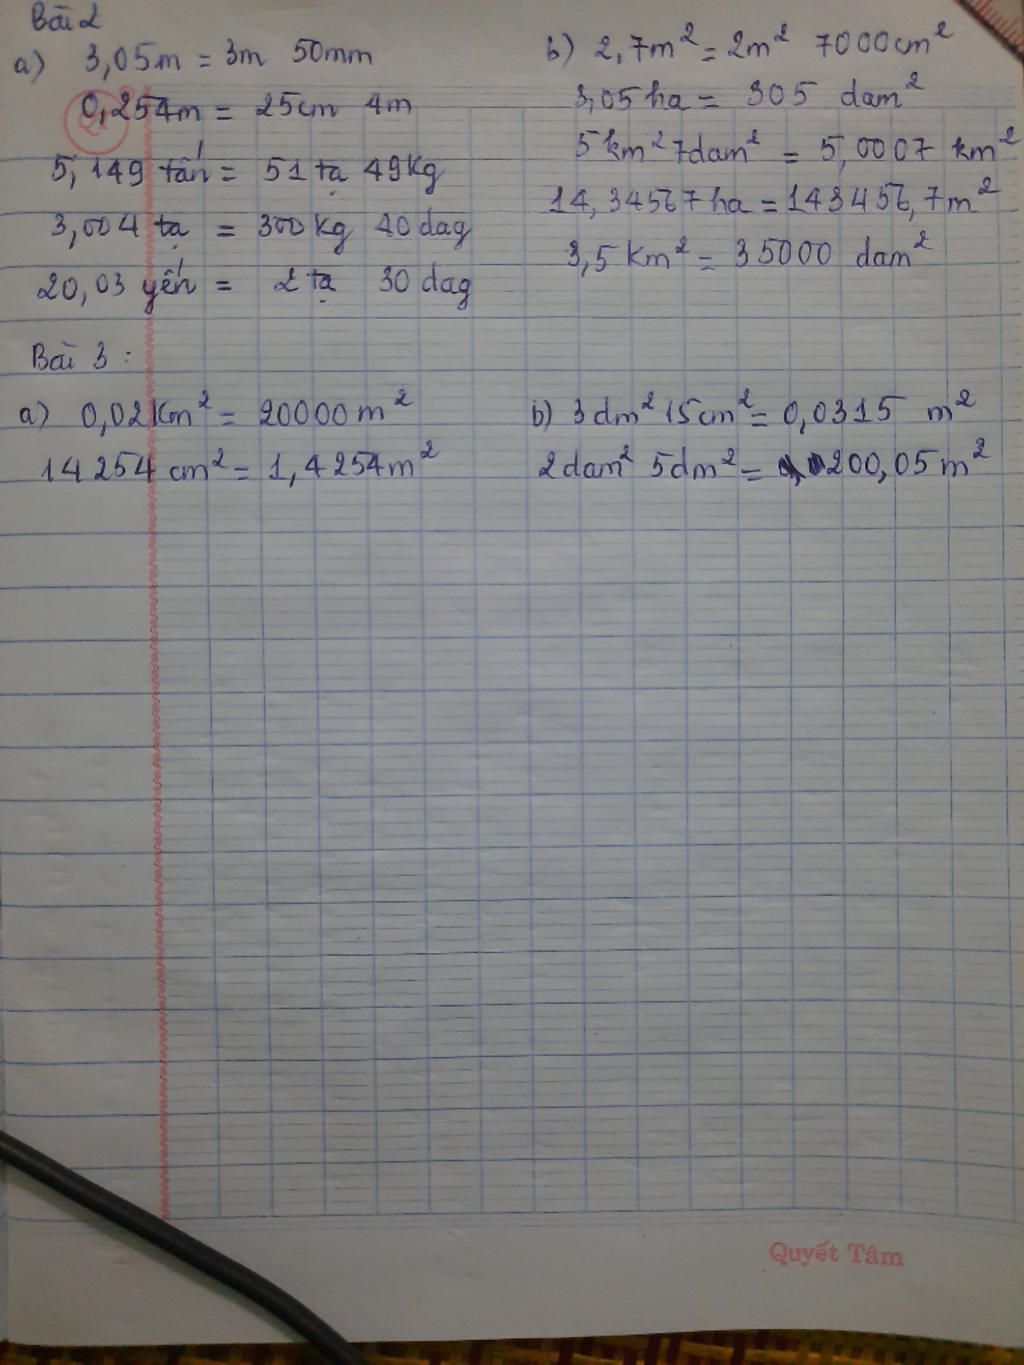 Bài 2
a) 3,05m = 3m 50mm
0,254m = 25cm 4m
5,149 tấn = 51 tạ 49Kg
3,004 tạ = 300kg 40 dag
20,03 yến = 2 tạ 30 dag
b) 2,7m² = 2m² 7000cm²
3,05 ha = 305 dam²
5km² 7dam² = 5,0007 km²
14,34567 ha = 143456,7m²
3,5 km² = 35000 dam²
Bài 3 :
a) 0,02Km² = 20000m²
14254 cm² = 1,4254m²
b) 3dm² 15cm² = 0,0315 m²
2dam² 5dm² = 200,05m²
Quyết Tâm